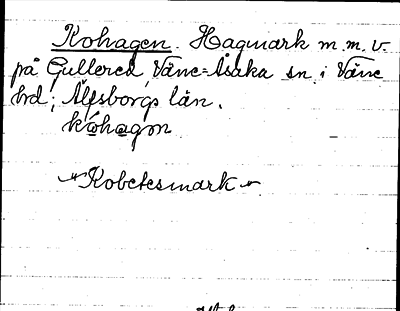 Kohagen. Hagmark m. m. v.
på Gullered, Väne-Åsaka sn i Väne
hrd, Älfsborgs län.
kóhagɔn
"Kobetesmark"